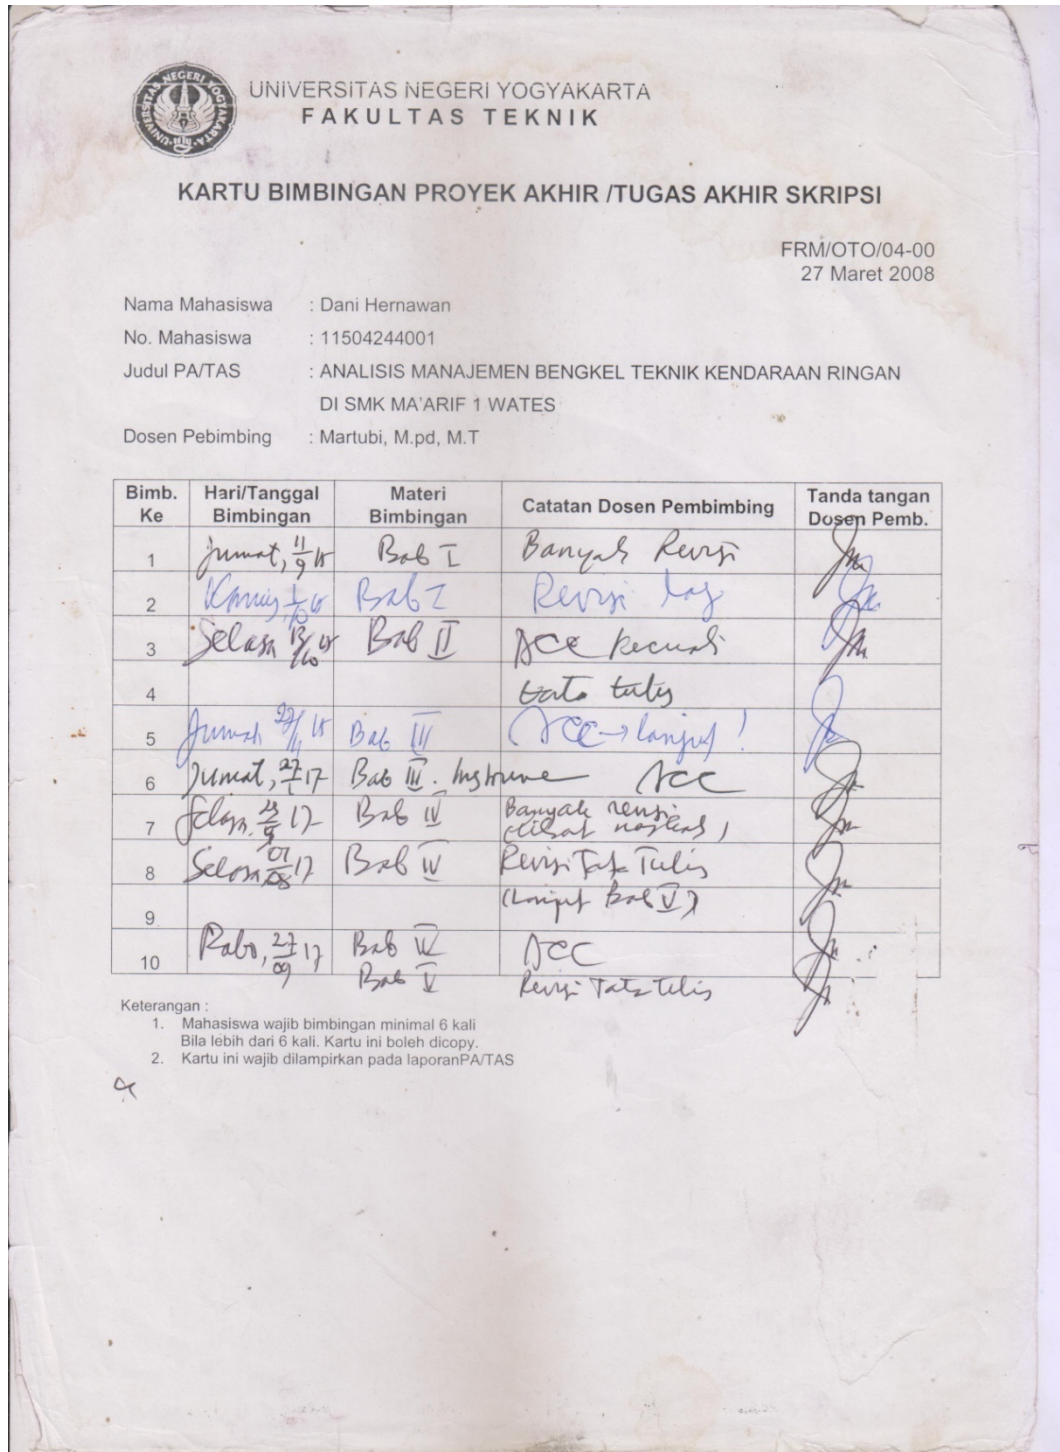 UNIVERSITAS NEGERI YOGYAKARTA
UNIVERSITAS NEGERI YOGYAKARTA
FAKULTAS TEKNIK
KARTU BIMBINGAN PROYEK AKHIR /TUGAS AKHIR SKRIPSI
FRM/OTO/04-00
27 Maret 2008
Nama Mahasiswa : Dani Hernawan
No. Mahasiswa : 11504244001
Judul PA/TAS : ANALISIS MANAJEMEN BENGKEL TEKNIK KENDARAAN RINGAN
DI SMK MA'ARIF 1 WATES
Dosen Pebimbing : Martubi, M.pd, M.T
Bimb. Ke Hari/Tanggal Bimbingan Materi Bimbingan Catatan Dosen Pembimbing Tanda tangan Dosen Pemb.
1 Jumat, 11/9 15 Bab I Banyak Revisi
2 Kamis, 1/10 15 Bab I Revisi lag
3 Selasa 13/10 15 Bab II ACC kecuali
4 tata tulis
5 Jumat 27/11 15 Bab III ACC → lanjut !
6 Jumat, 27/1 17 Bab III. Instrume ACC
7 Selasa, 17 Bab IV Banyak revisi
(lihat naskah)
8 Selasa 01/08 17 Bab IV Revisi Tata Tulis
9 (Lanjut Bab V)
10 Rabo, 27/09 17 Bab IV ACC
Bab V Revisi Tata tulis
Keterangan :
1. Mahasiswa wajib bimbingan minimal 6 kali
Bila lebih dari 6 kali. Kartu ini boleh dicopy.
2. Kartu ini wajib dilampirkan pada laporanPA/TAS